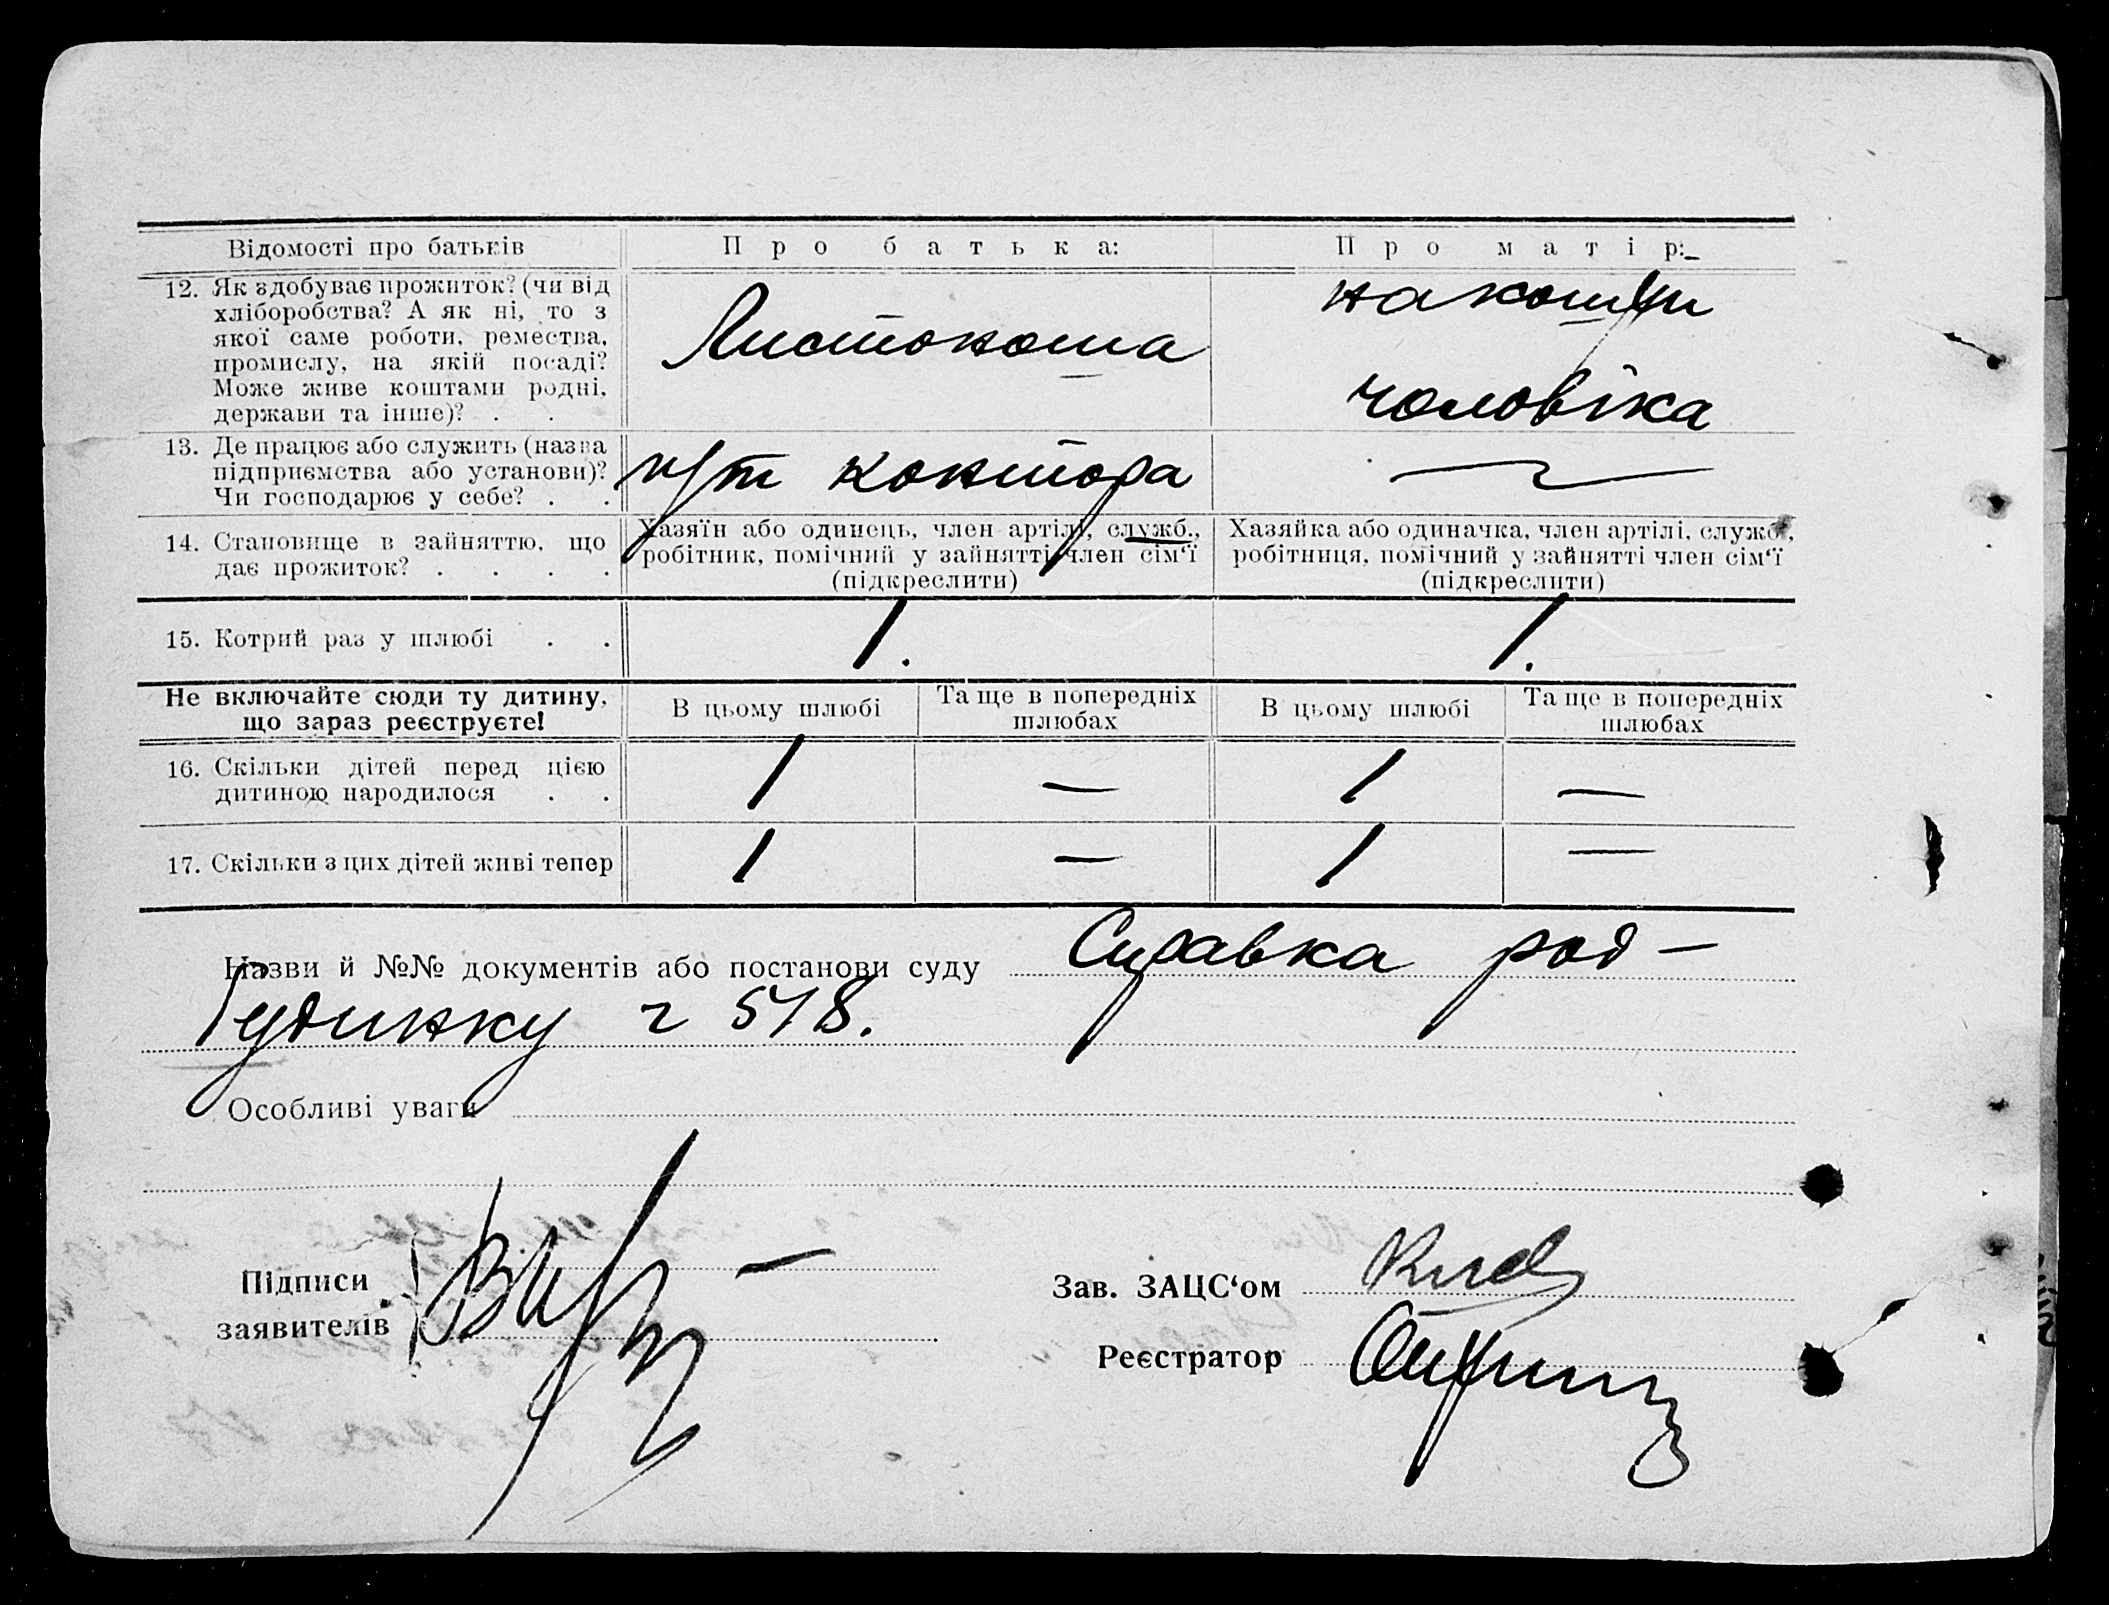 Відомості про батьків
Про батька:
Про матір:
12. Як здобуває прожиток? (чи від
хліборобства? А як ні, то з
якої саме роботи, ремества,
промислу, на якій посаді?
Може живе коштами родні,
держави та інше)? . .
Листоноша
на кошти
чоловіка
13. Де працює або служить (назва
підприємства або установи)?
Чи господарює у себе? . .
п/т контора
—
14. Становище в зайняттю, що
дає прожиток? . . . .
Хазяїн або одинець, член артілі, служб.,
робітник, помічний у зайнятті член сім‘ї
(підкреслити)
Хазяйка або одиначка, член артілі, служб.,
робітниця, помічний у зайнятті член сім‘ї
(підкреслити)
15. Котрий раз у шлюбі . .
1.
1.
Не включайте сюди ту дитину,
що зараз реєструєте!
В цьому шлюбі
Та ще в попередніх
шлюбах
В цьому шлюбі
Та ще в попередніх
шлюбах
16. Скільки дітей перед цією
дитиною народилося . .
1 — 1 —
17. Скільки з цих дітей живі тепер
1 — 1 —
Назви й №№ документів або постанови суду Справка род-
будинку 518.
Особливі уваги
Підписи
заявителів
Зав. ЗАЦС‘ом
Реєстратор